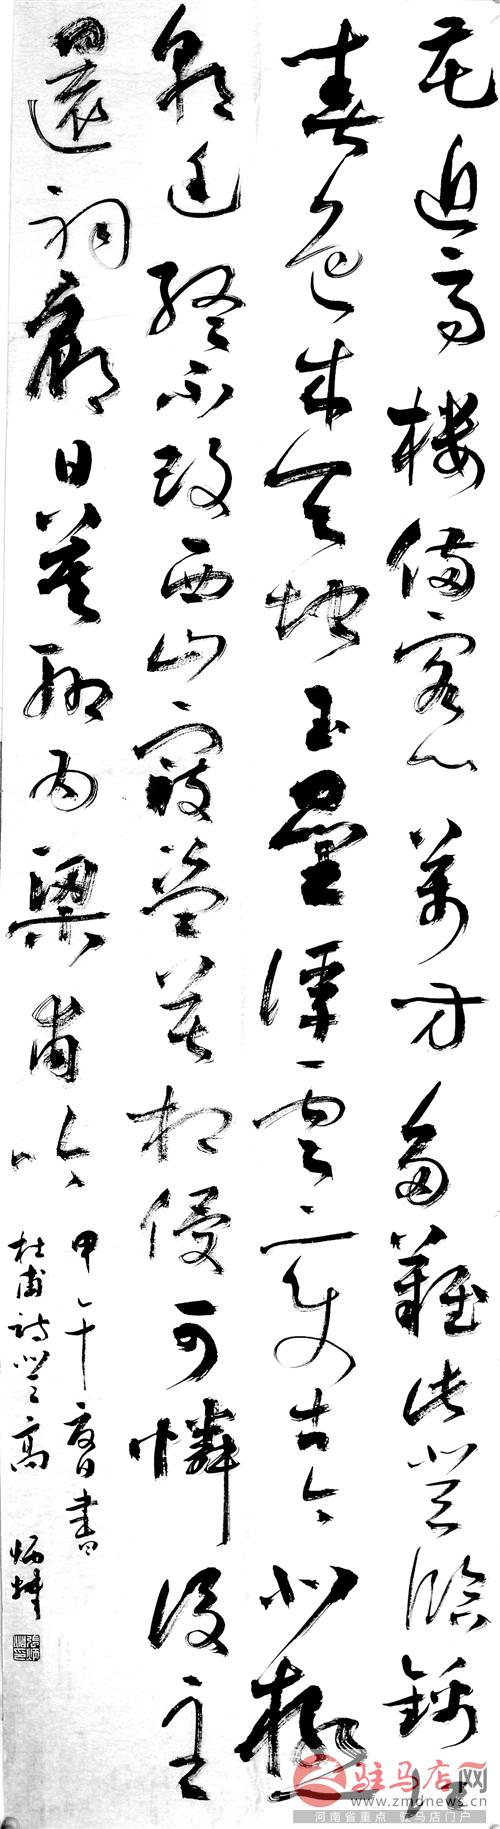 花近高楼傷客心萬方多難此登臨錦江
春色来天地玉壘浮雲变古今北極
朝廷终不改西山寇盗莫相侵可憐後主
還祠廟日暮聊为梁甫吟
甲午夏日書
杜甫詩登高
驻马店网
www.zmdnews.cn
河南省重点 驻马店门户